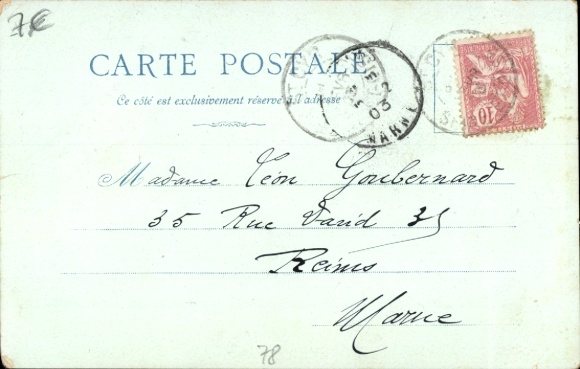 7€
CARTE POSTALE
Ce côté est exclusivement réservé à l'adresse
03
MARNE
10
Madame Léon Goubernard
35 Rue David 35
Reims
Marne
78